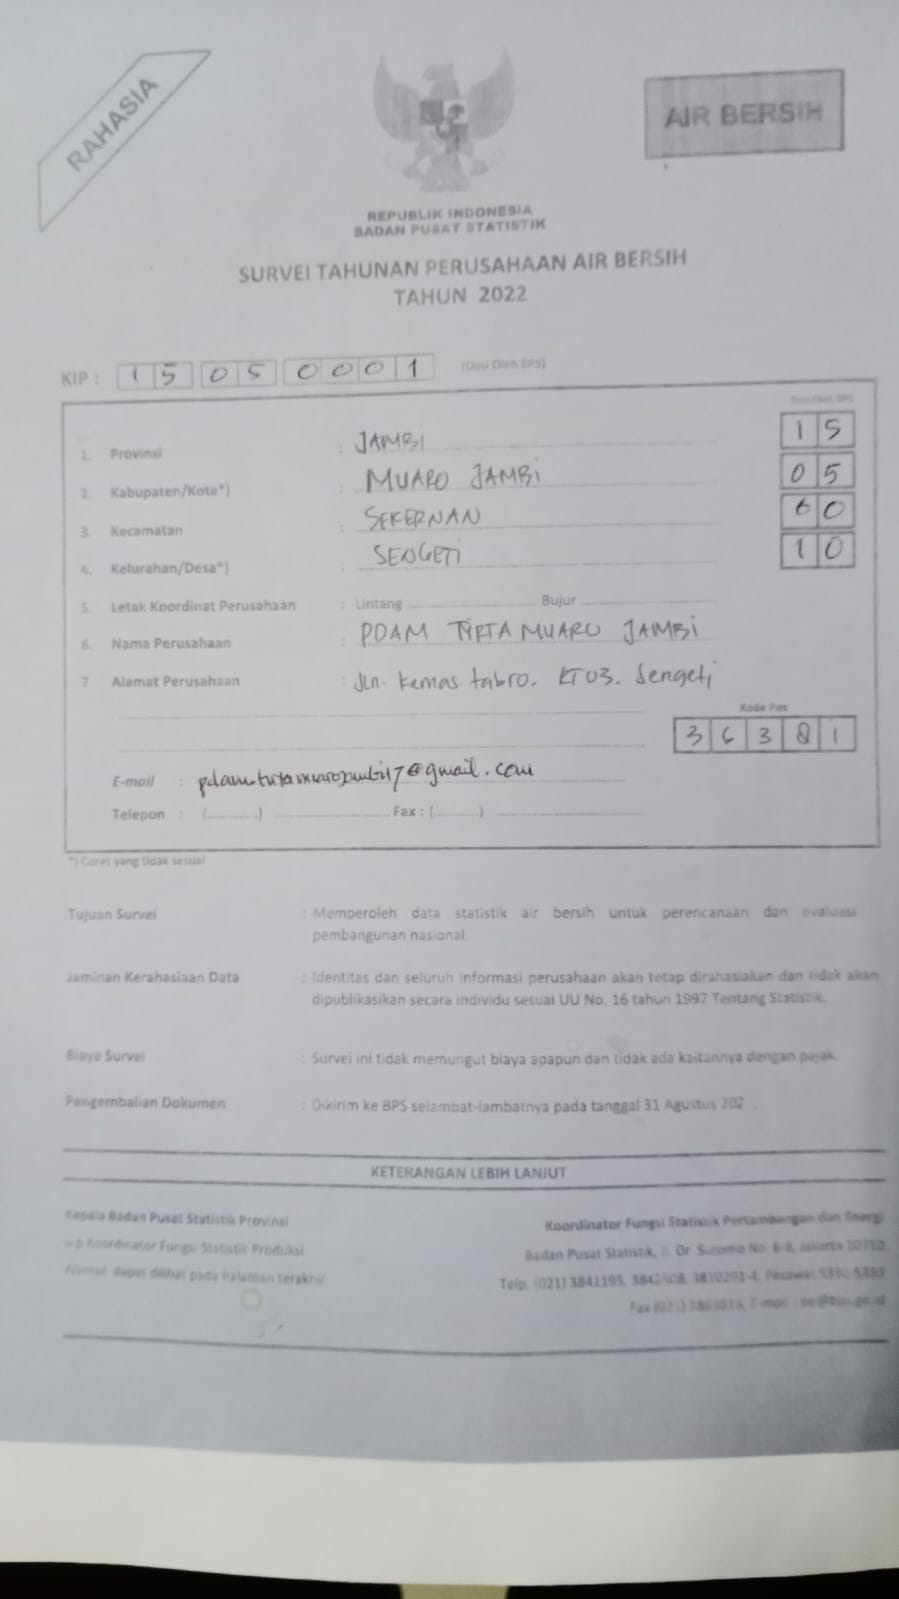 RAHASIA
AIR BERSIH
REPUBLIK INDONESIA
BADAN PUSAT STATISTIK
SURVEI TAHUNAN PERUSAHAAN AIR BERSIH
TAHUN 2022
KIP : 1 5 0 5 0 0 0 1 (Diisi Oleh BPS)
Diisi Oleh BPS
1. Provinsi : JAMBI 1 5
2. Kabupaten/Kota*) : MUARO JAMBI 0 5
3. Kecamatan : SEKERNAN 6 0
4. Kelurahan/Desa*) : SENGETI 1 0
5. Letak Koordinat Perusahaan : Lintang Bujur
6. Nama Perusahaan : PDAM TIRTA MUARO JAMBI
7 Alamat Perusahaan : Jln. Kemas tabro. RT 03. Sengeti
Kode Pos
3 6 3 8 1
E-mail : @gmail.com
Telepon : (............) Fax : (............)
*) Coret yang tidak sesuai
Tujuan Survei : Memperoleh data statistik air bersih untuk perencanaan dan evaluasi
pembangunan nasional.
Jaminan Kerahasiaan Data : Identitas dan seluruh informasi perusahaan akan tetap dirahasiakan dan tidak akan
dipublikasikan secara individu sesuai UU No. 16 tahun 1997 Tentang Statistik.
Biaya Survei : Survei ini tidak memungut biaya apapun dan tidak ada kaitannya dengan pajak.
Pengembalian Dokumen : Dikirim ke BPS selambat-lambatnya pada tanggal 31 Agustus 202 .
KETERANGAN LEBIH LANJUT
Kepala Badan Pusat Statistik Provinsi
u.p Koordinator Fungsi Statistik Produksi
Alamat dapat dilihat pada halaman terakhir
Koordinator Fungsi Statistik Pertambangan dan Energi
Badan Pusat Statistik, Jl. Dr. Sutomo No. 6-8, Jakarta 10710
Telp. (021) 3841195, 3810291-4, Pesawat
Fax (021) E-mail :